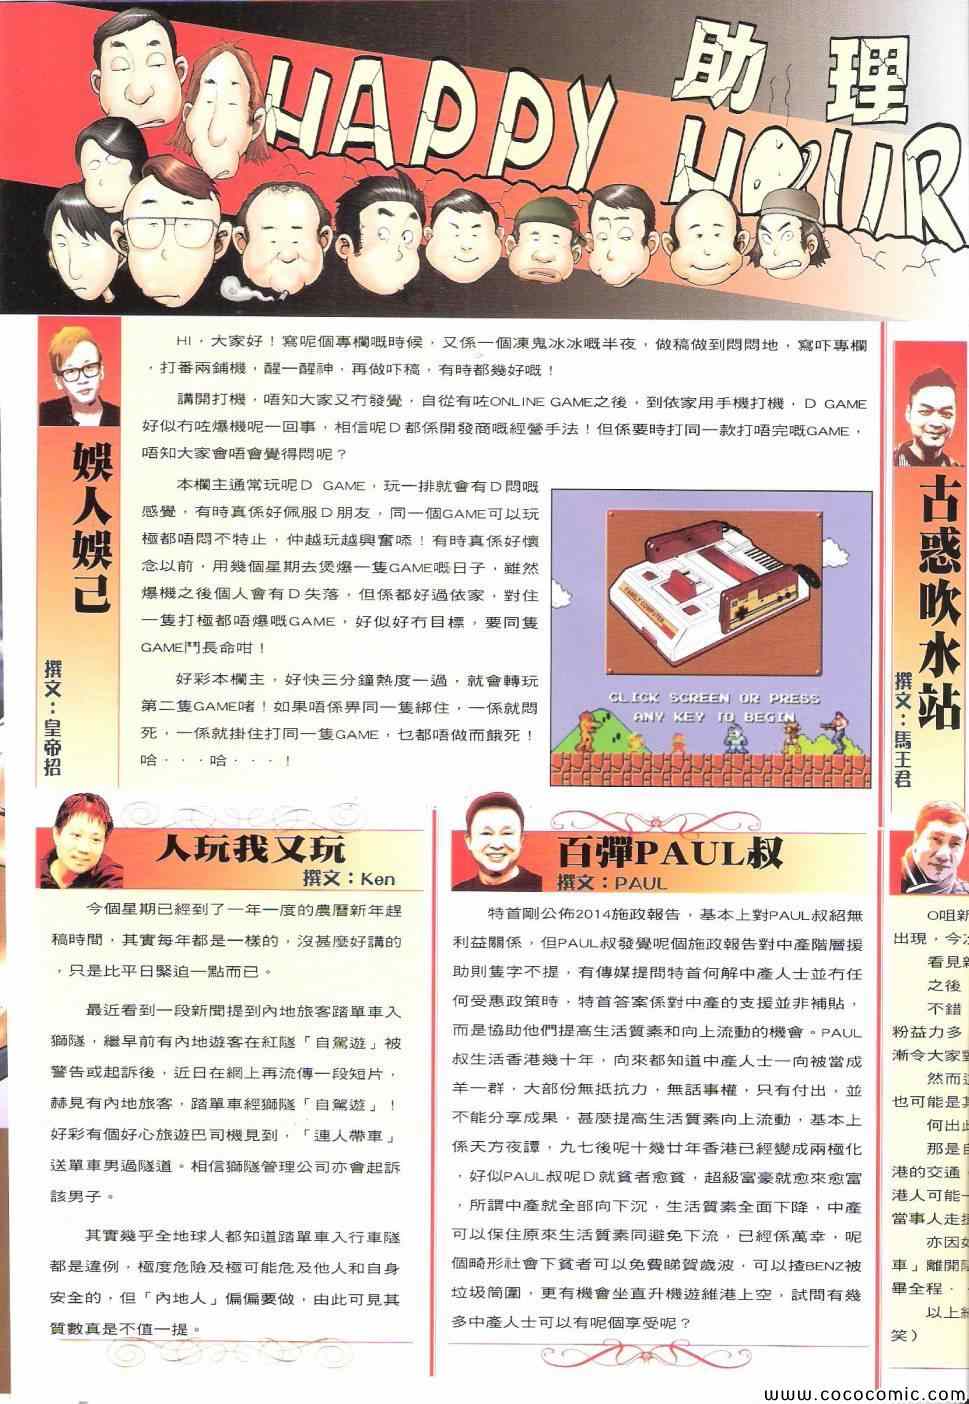 HAPPY 助理
HOUR
HI，大家好！寫呢個專欄嘅時候，又係一個凍鬼冰冰嘅半夜，做稿做到悶悶地，寫吓專欄
，打番兩鋪機，醒一醒神，再做吓稿，有時都幾好嘅！
講開打機，唔知大家又冇發覺，自從有咗ONLINE GAME之後，到依家用手機打機，D GAME
好似冇咗爆機呢一回事，相信呢D都係開發商嘅經營手法！但係要時打同一款打唔完嘅GAME，
唔知大家會唔會覺得悶呢？
本欄主通常玩呢D GAME，玩一排就會有D悶嘅
感覺，有時真係好佩服D朋友，同一個GAME可以玩
極都唔悶不特止，仲越玩越興奮㖭！有時真係好懷
念以前，用幾個星期去煲爆一隻GAME嘅日子，雖然
爆機之後個人會有D失落，但係都好過依家，對住
一隻打極都唔爆嘅GAME，好似好冇目標，要同隻
GAME鬥長命咁！
好彩本欄主，好快三分鐘熱度一過，就會轉玩
第二隻GAME啫！如果唔係畀同一隻綁住，一係就悶
死，一係就掛住打同一隻GAME，乜都唔做而餓死！
哈．．．哈．．．！
娛人娛己
撰文：皇帝招
FAMILY COMPUTER
CLICK SCREEN OR PRESS
ANY KEY TO BEGIN
古惑吹水站
撰文：馬王君
人玩我又玩
撰文：Ken
今個星期已經到了一年一度的農曆新年趕
稿時間，其實每年都是一樣的，沒甚麼好講的
，只是比平日緊迫一點而已。
最近看到一段新聞提到內地旅客踏單車入
獅隧，繼早前有內地遊客在紅隧「自駕遊」被
警告或起訴後，近日在網上再流傳一段短片，
赫見有內地旅客，踏單車經獅隧「自駕遊」！
好彩有個好心旅遊巴司機見到，「連人帶車」
送單車男過隧道。相信獅隧管理公司亦會起訴
該男子。
其實幾乎全地球人都知道踏單車入行車隧
都是違例，極度危險及極可能危及他人和自身
安全的，但「內地人」偏偏要做，由此可見其
質數真是不值一提。
百彈PAUL叔
撰文：PAUL
特首剛公佈2014施政報告，基本上對PAUL叔絕無
利益關係，但PAUL叔發覺呢個施政報告對中產階層援
助則隻字不提，有傳媒提問特首何解中產人士並冇任
何受惠政策時，特首答案係對中產的支援並非補貼，
而是協助他們提高生活質素和向上流動的機會。PAUL
叔生活香港幾十年，向來都知道中產人士一向被當成
羊一群，大部份無抵抗力，無話事權，只有付出，並
不能分享成果，甚麼提高生活質素向上流動，基本上
係天方夜譚，九七後呢十幾廿年香港已經變成兩極化
，好似PAUL叔呢D就貧者愈貧，超級富豪就愈來愈富
，所謂中產就全部向下沉，生活質素全面下降，中產
可以保住原來生活質素同避免下流，已經係萬幸，呢
個畸形社會下貧者可以免費睇賀歲波，可以揸BENZ被
垃圾筒圍，更有機會坐直升機遊維港上空，試問有幾
多中產人士可以有呢個享受呢？
O咀新
出現，今次
看見新
之後，
不錯，
粉益力多
漸令大家對
然而這
也可能是其
何出此
那是自
港的交通
港人可能一
當事人走摸
亦因如
車」離開隧
畢全程．
以上純
笑）
www.cococomic.com